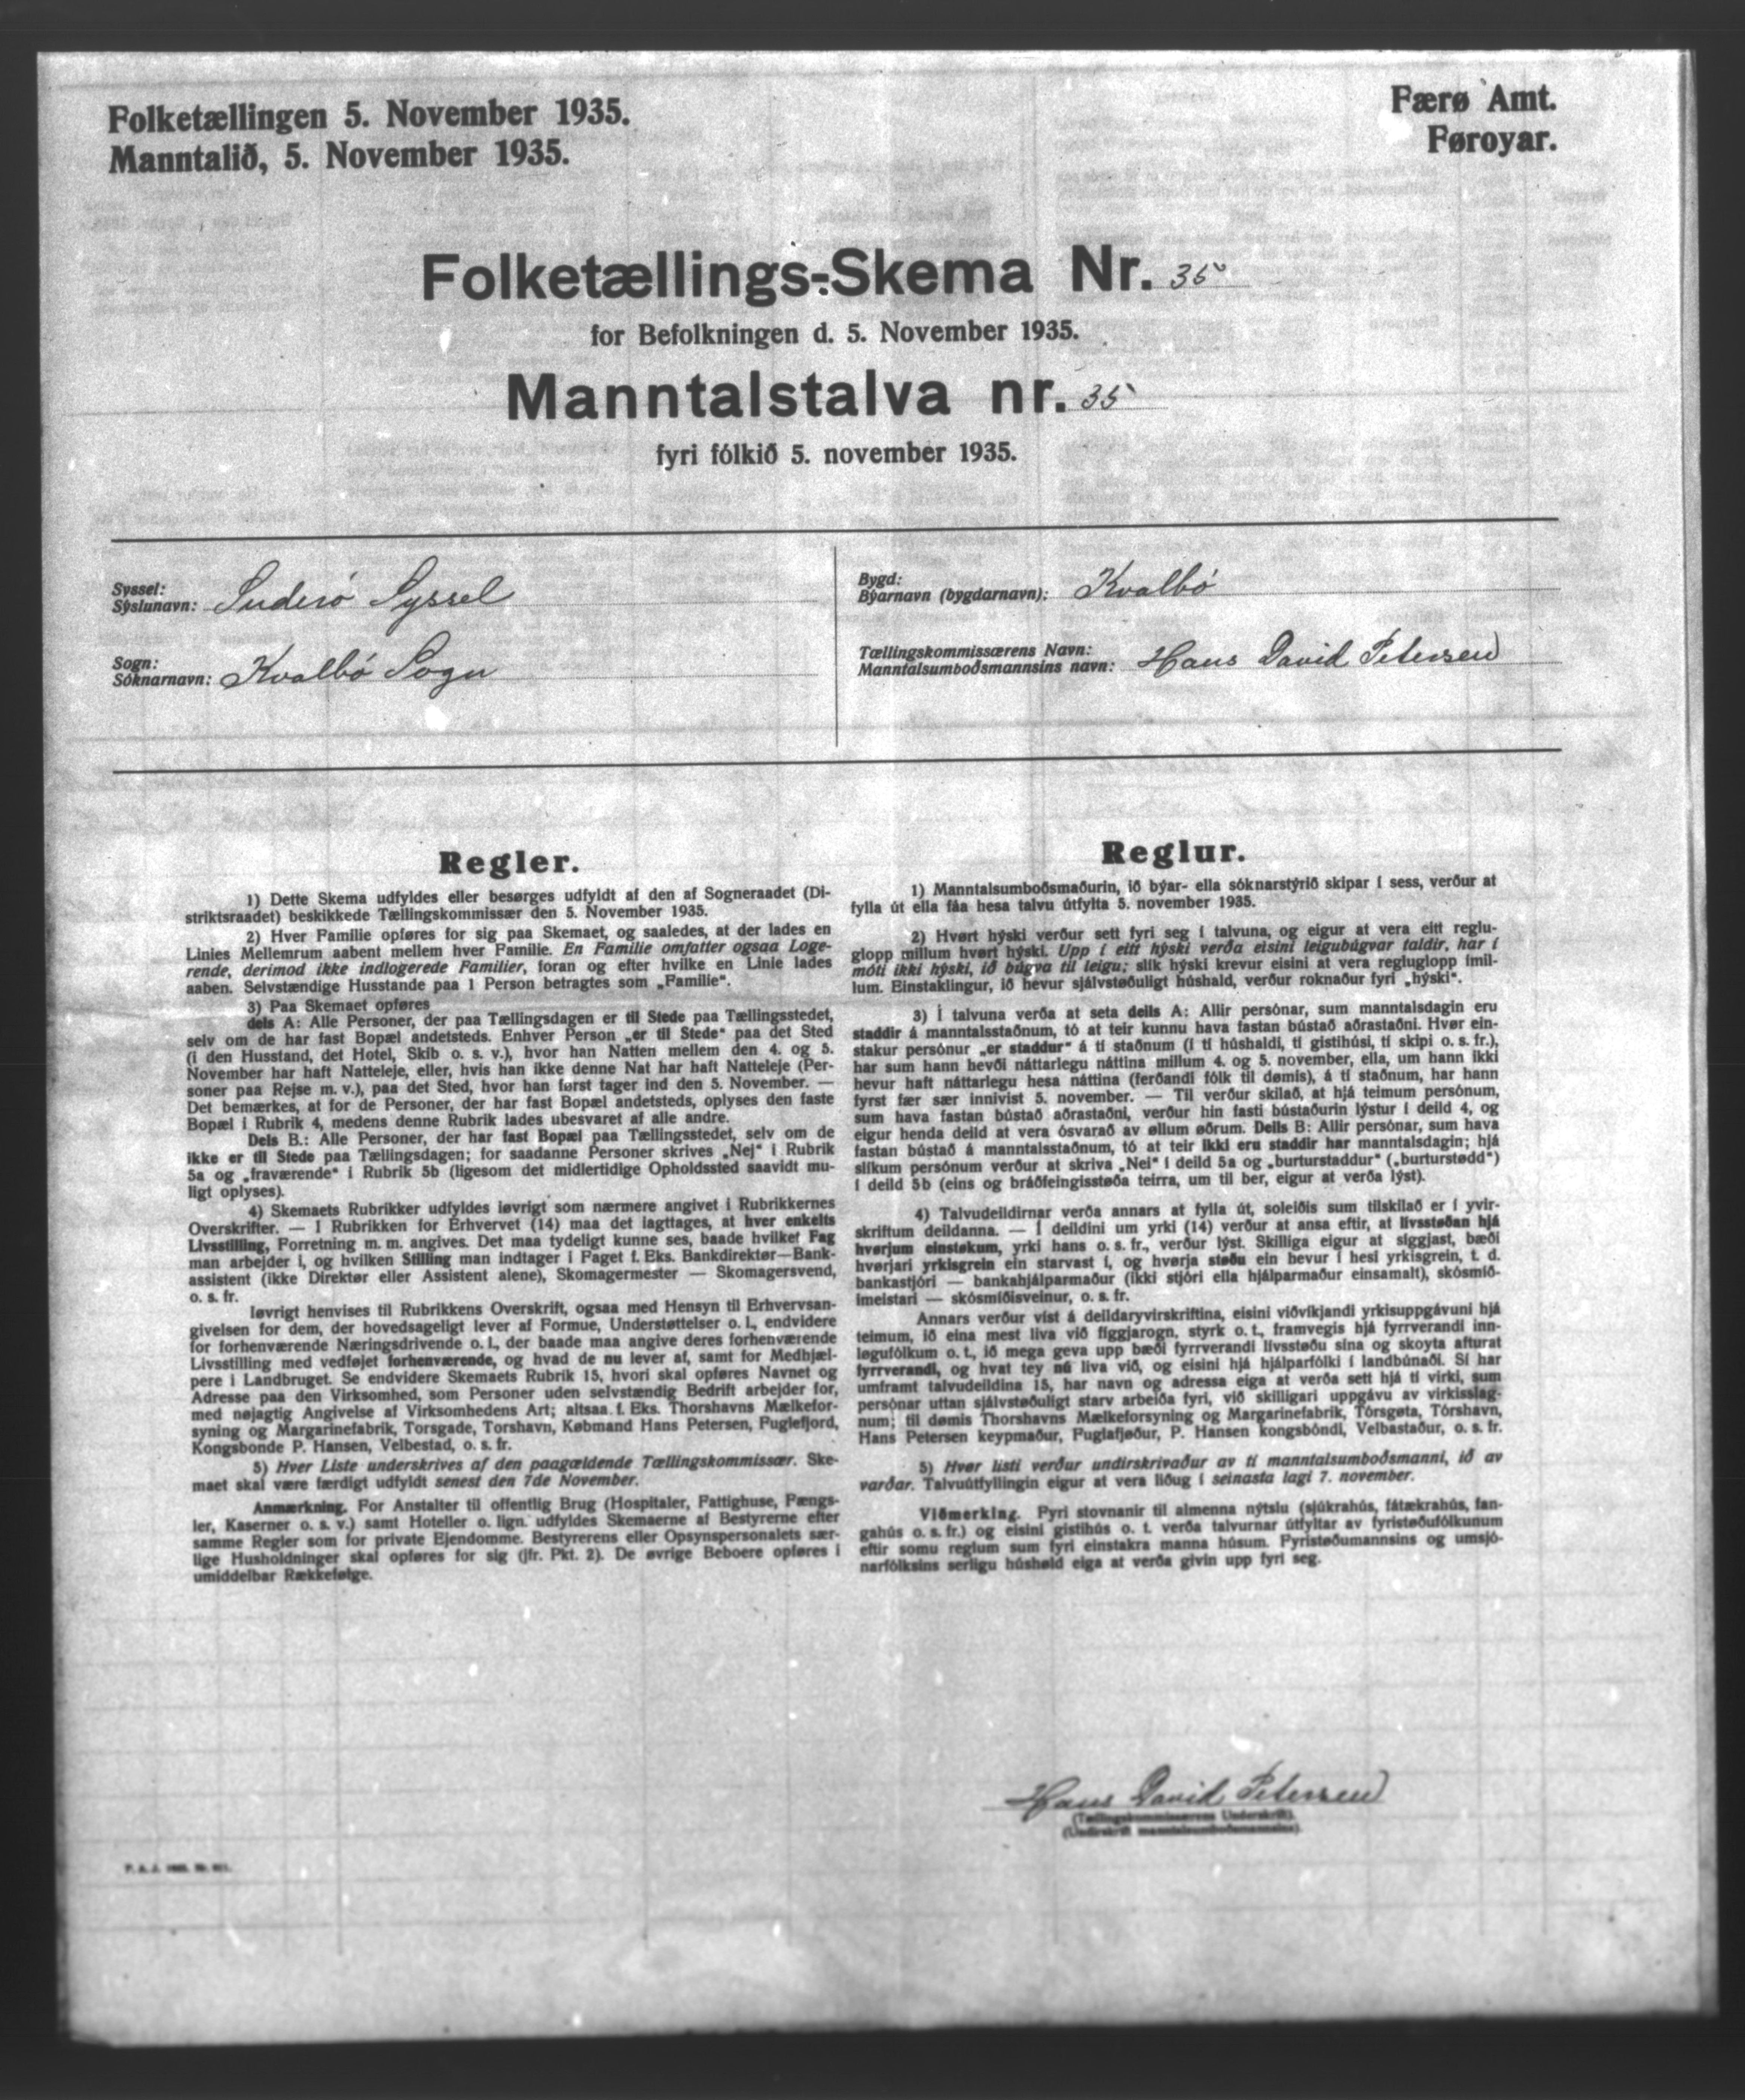 Folketællingen 5. November 1935.
Manntalið, 5. November 1935.
Færø Amt.
Føroyar.
Folketællings-Skema Nr. 35
for Befolkningen d. 5. November 1935.
Manntalstalva nr. 35
fyri fólkið 5. november 1935.
Syssel:
Sýslunavn: Suderø Syssel
Sogn:
Sóknarnavn: Kvalbø Sogn
Bygd:
Býarnavn (bygdarnavn): Kvalbø
Tællingskommissærens Navn:
Manntalsumboðsmannsins navn: Hans David Petersen
Regler.
1) Dette Skema udfyldes eller besørges udfyldt af den af Sogneraadet (Di-
striktsraadet) beskikkede Tællingskommissær den 5. November 1935.
2) Hver Familie opføres for sig paa Skemaet, og saaledes, at der lades en
Linies Mellemrum aabent mellem hver Familie. En Familie omfatter ogsaa Loge-
rende, derimod ikke indlogerede Familier, foran og efter hvilke en Linie lades
aaben. Selvstændige Husstande paa 1 Person betragtes som „Familie“.
3) Paa Skemaet opføres
dels A: Alle Personer, der paa Tællingsdagen er til Stede paa Tællingsstedet,
selv om de har fast Bopæl andetsteds. Enhver Person „er til Stede“ paa det Sted
(i den Husstand, det Hotel, Skib o. s. v.), hvor han Natten mellem den 4. og 5.
November har haft Natteleje, eller, hvis han ikke denne Nat har haft Natteleje (Per-
soner paa Rejse m. v.), paa det Sted, hvor han først tager ind den 5. November. —
Det bemærkes, at for de Personer, der har fast Bopæl andetsteds, oplyses den faste
Bopæl i Rubrik 4, medens denne Rubrik lades ubesvaret af alle andre.
Dels B.: Alle Personer, der har fast Bopæl paa Tællingsstedet, selv om de
ikke er til Stede paa Tællingsdagen; for saadanne Personer skrives „Nej“ i Rubrik
5a og „fraværende“ i Rubrik 5b (ligesom det midlertidige Opholdssted saavidt mu-
ligt oplyses).
4) Skemaets Rubrikker udfyldes iøvrigt som nærmere angivet i Rubrikkernes
Overskrifter. — I Rubrikken for Erhvervet (14) maa det iagttages, at hver enkelts
Livsstilling, Forretning m. m. angives. Det maa tydeligt kunne ses, baade hvilket Fag
man arbejder i, og hvilken Stilling man indtager i Faget f. Eks. Bankdirektør—Bank-
assistent (ikke Direktør eller Assistent alene), Skomagermester — Skomagersvend,
o. s. fr.
Iøvrigt henvises til Rubrikkens Overskrift, ogsaa med Hensyn til Erhvervsan-
givelsen for dem, der hovedsageligt lever af Formue, Understøttelser o. l., endvidere
for forhenværende Næringsdrivende o. l., der baade maa angive deres forhenværende
Livsstilling med vedføjet forhenværende, og hvad de nu lever af, samt for Medhjæl-
pere i Landbruget. Se endvidere Skemaets Rubrik 15, hvori skal opføres Navnet og
Adresse paa den Virksomhed, som Personer uden selvstændig Bedrift arbejder for,
med nøjagtig Angivelse af Virksomhedens Art; altsaa f. Eks. Thorshavns Mælkefor-
syning og Margarinefabrik, Torsgade, Torshavn, Købmand Hans Petersen, Fuglefjord,
Kongsbonde P. Hansen, Velbestad, o. s. fr.
5) Hver Liste underskrives af den paagældende Tællingskommissær. Ske-
maet skal være færdigt udfyldt senest den 7de November.
Anmærkning. For Anstalter til offentlig Brug (Hospitaler, Fattighuse, Fængs-
ler, Kaserner o. s. v.) samt Hoteller o. lign. udfyldes Skemaerne af Bestyrerne efter
samme Regler som for private Ejendomme. Bestyrerens eller Opsynspersonalets sær-
lige Husholdninger skal opføres for sig (jfr. Pkt. 2). De øvrige Beboere opføres i
umiddelbar Rækkefølge.
Reglur.
1) Manntalsumboðsmaðurin, ið býar- ella sóknarstýrið skipar í sess, verður at
fylla út ella fáa hesa talvu útfylta 5. november 1935.
2) Hvørt hýski verður sett fyri seg í talvuna, og eigur at vera eitt reglu-
glopp millum hvørt hýski. Upp í eitt hýski verða eisini leigubúgvar taldir, har í
móti ikki hýski, ið búgva til leigu; slík hýski krevur eisini at vera regluglopp ímil-
lum. Einstaklingur, ið hevur sjálvstøðuligt húshald, verður roknaður fyri „hýski“.
3) Í talvuna verða at seta deils A: Allir persónar, sum manntalsdagin eru
staddir á manntalsstaðnum, tó at teir kunnu hava fastan bústað aðrastaðni. Hvør ein-
stakur persónur „er staddur“ á tí staðnum (í tí húshaldi, tí gistihúsi, tí skipi o. s. fr.),
har sum hann hevði náttarlegu náttina millum 4. og 5. november, ella, um hann ikki
hevur haft náttarlegu hesa náttina (ferðandi fólk til dømis), á tí staðnum, har hann
fyrst fær sær innivist 5. november. — Til verður skilað, at hjá teimum persónum,
sum hava fastan bústað aðrastaðni, verður hin fasti bústaðurin lýstur í deild 4, og
eigur henda deild at vera ósvarað av øllum øðrum. Deils B: Allir persónar, sum hava
fastan bústað á manntalsstaðnum, tó at teir ikki eru staddir har manntalsdagin; hjá
slíkum persónum verður at skriva „Nei“ í deild 5a og „burturstaddur“ („burturstødd“)
í deild 5b (eins og bráðfeingisstøða teirra, um til ber, eigur at verða lýst).
4) Talvudeildirnar verða annars at fylla út, soleiðis sum tilskilað er í yvir-
skriftum deildanna. — Í deildini um yrki (14) verður at ansa eftir, at livsstøðan hjá
hvørjum einstøkum, yrki hans o. s. fr., verður lýst. Skilliga eigur at siggjast, bæði
hvørjari yrkisgrein ein starvast í, og hvørja støðu ein hevur í hesi yrkisgrein, t. d.
bankastjóri — bankahjálparmaður (ikki stjóri ella hjálparmaður einsamalt), skósmið-
imeistari — skósmiðisveinur, o. s. fr.
Annars verður víst á deildaryvirskriftina, eisini viðvíkjandi yrkisuppgávuni hjá
teimum, ið eina mest liva við figgjarogn, styrk o. t., framvegis hjá fyrrverandi inn-
løgufólkum o. t., ið mega geva upp bæði fyrrverandi livsstøðu sína og skoyta afturat
fyrrverandi, og hvat tey nú liva við, og eisini hjá hjálparfólki í landbúnaði. Sí har
umframt talvudeildina 15, har navn og adressa eiga at verða sett hjá tí virki, sum
persónar uttan sjálvstøðuligt starv arbeiða fyri, við skilligari uppgávu av virkisslag-
num; til dømis Thorshavns Mælkeforsyning og Margarinefabrik, Tórsgøta, Tórshavn,
Hans Petersen keypmaður, Fuglafjøður, P. Hansen kongsbóndi, Velbastaður, o. s. fr.
5) Hvør listi verður undirskrivaður av tí manntalsumboðsmanni, ið av
varðar. Talvuútfyllingin eigur at vera liðug í seinasta lagi 7. november.
Viðmerking. Fyri stovnanir til almenna nýtslu (sjúkrahús, fátækrahús, fan-
gahús o. s. fr.) og eisini gistihús o. t. verða talvurnar útfyltar av fyristøðufólkunum
eftir somu reglum sum fyri einstakra manna húsum. Fyristøðumannsins og umsjó-
narfólksins serligu húshald eiga at verða givin upp fyri seg.
Hans David Petersen
(Tællingskommissærens Underskrift).
(Undirskrift manntalsumboðsmannsins)